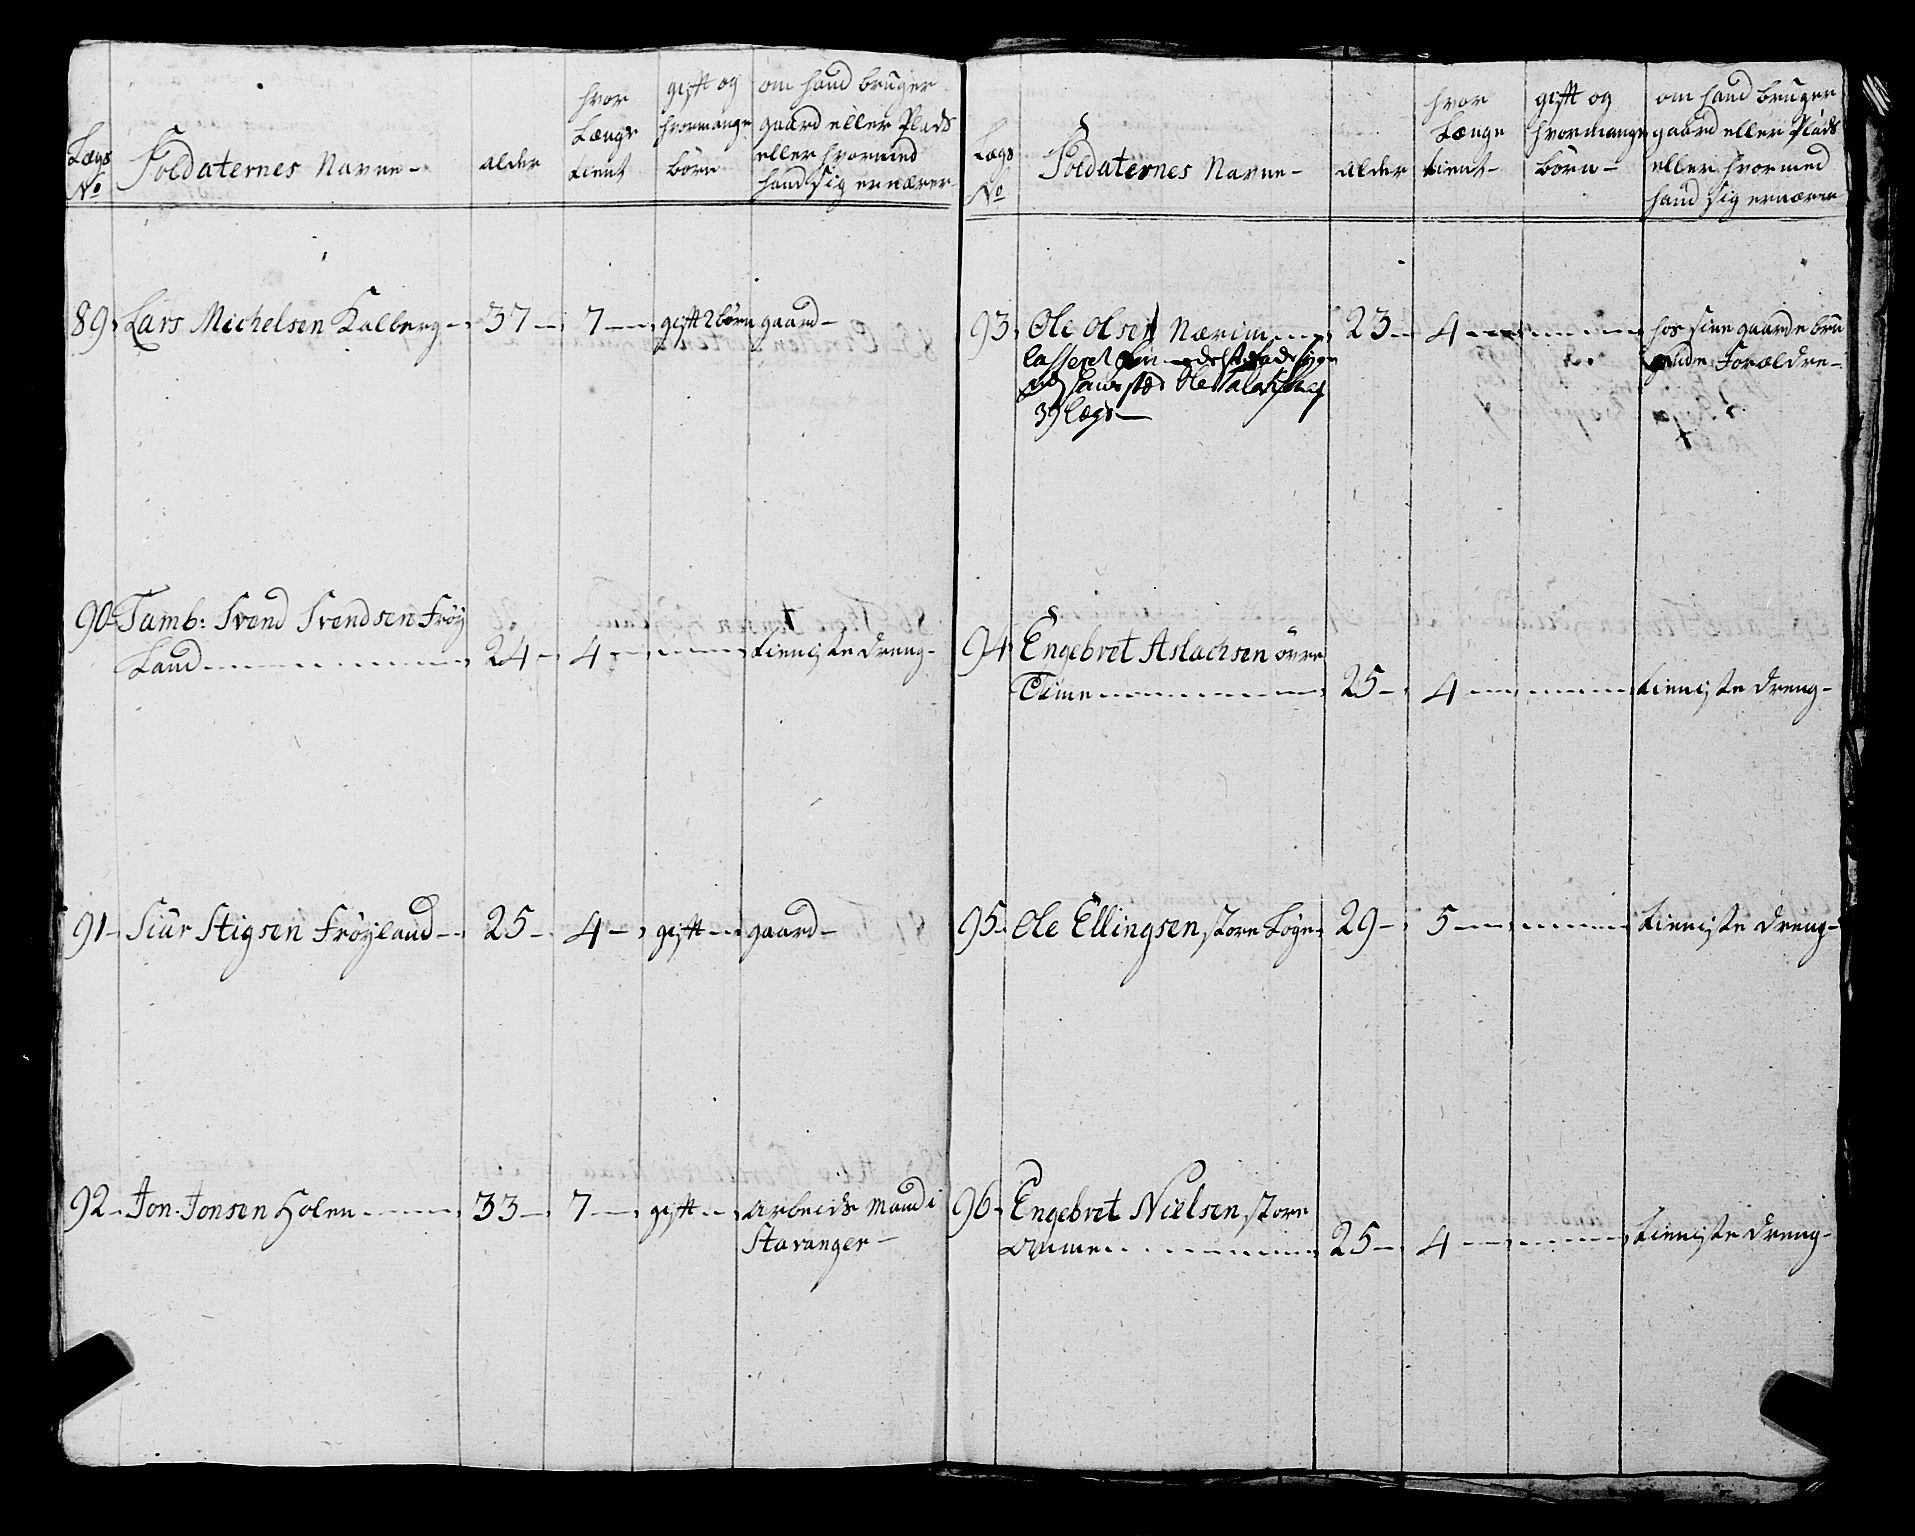 Lægs No
Soldaternes Navne -
alder
hvor Længe tient
gifft og hvormange börn
om hand bruger gaard eller Plads eller hvormed hand sig ernærer
89. Lars Michelsen Kalberg - 37 - 7 - gifft 2 börn gaard -
90. Tamb: Svend Svendsen Fröy
Land - 24 - 4 - tieniste dreng -
91 - Siur Stigsen Fröyland - 25 - 4 - gifft - gaard -
92 - Jon Jonsen Holen - 33 - 7 - gifft - Arbeids Mand i
Stavanger -
Lægs No
Soldaternes Navne -
alder
hvor Længe tient -
gifft og hvormange börn -
om hand bruger gaard eller Plads eller hvormed hand sig ernærer
93. Ole Olsen Nærim - 23 - 4 - hos sine gaarde bru
gende Forældre -
Casseret
hans sted Ole
39 Lægd -
94. Engebret Aslachsen övre
Time - 25 - 4 - tieniste dreng -
95. Ole Ellingsen store Löge - 29 - 5 - tieniste dreng -
96. Engebret Nielsen store
Omme - 25 - 4 - tieniste dreng -